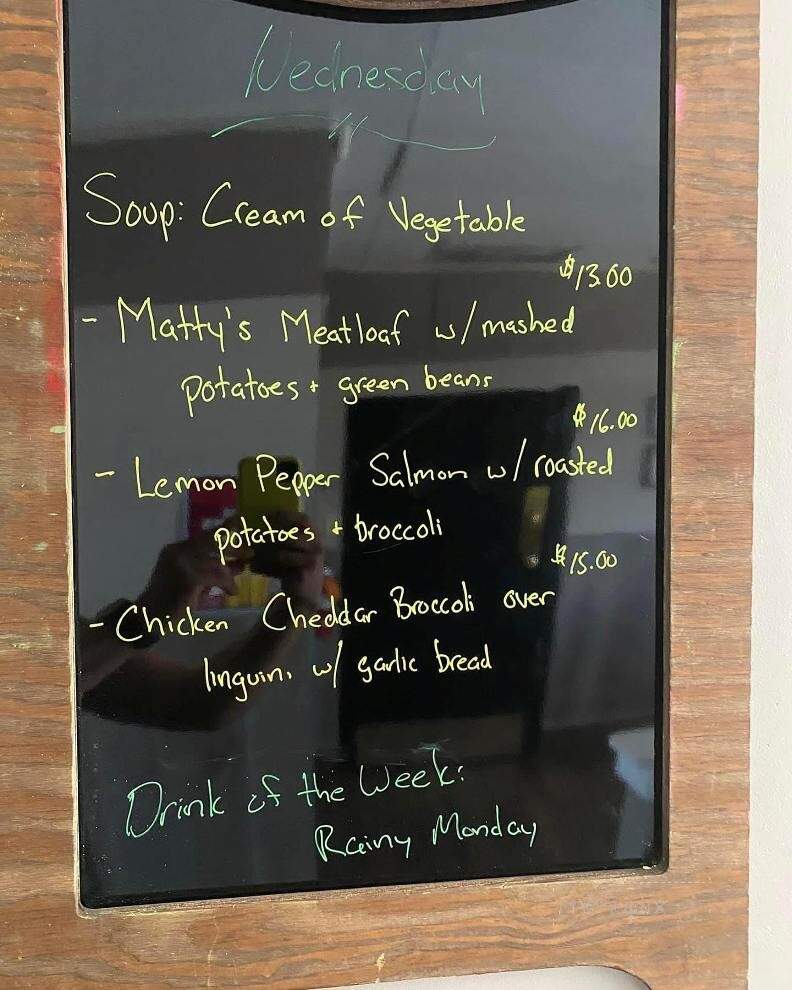 Wednesday
Soup: Cream of Vegetable
$13.00
- Matty's Meatloaf w/mashed
potatoes + green beans
$16.00
- Lemon Pepper Salmon w/roasted
potatoes + broccoli
$15.00
- Chicken Cheddar Broccoli over
linguini w/ garlic bread
Drink of the Week:
Rainy Monday